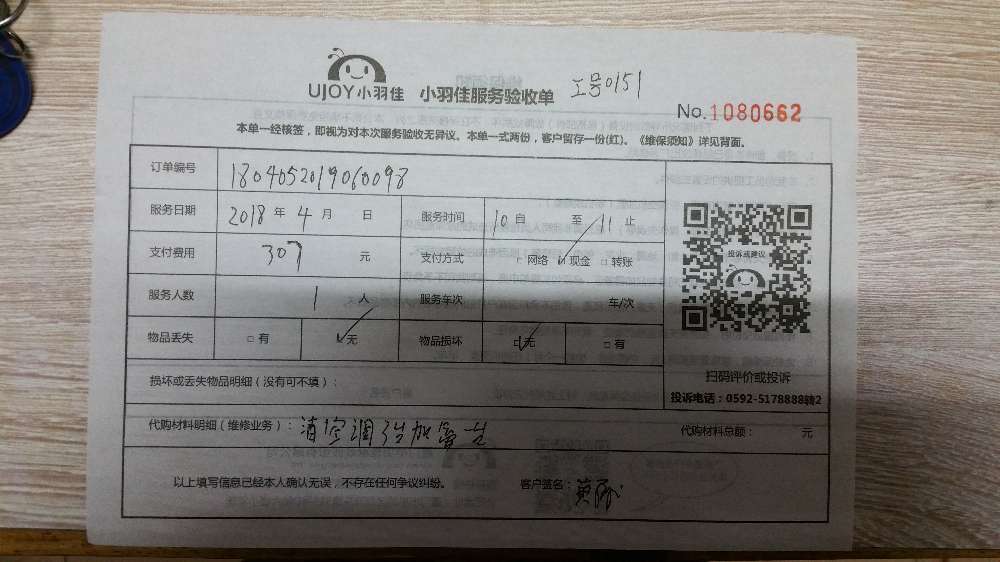 UJOY小羽佳 小羽佳服务验收单 工号0151
No.1080662
本单一经核签，即视为对本次服务验收无异议。本单一式两份，客户留存一份(红)。《维保须知》详见背面。
订单编号 1804052019060098
服务日期 2018 年 4 月 日 服务时间 10 自 至 11 止
支付费用 307 元 支付方式 □网络 ☑现金 □转账
服务人数 1 人 服务车次 车/次
物品丢失 □有 ☑无 物品损坏 ☑无 □有
投诉或建议
扫码评价或投诉
投诉电话：0592-5178888转2
损坏或丢失物品明细（没有可不填）：
代购材料明细（维修业务）： 清空调 代购材料总额： 元
以上填写信息已经本人确认无误，不存在任何争议纠纷。 客户签名： 黄